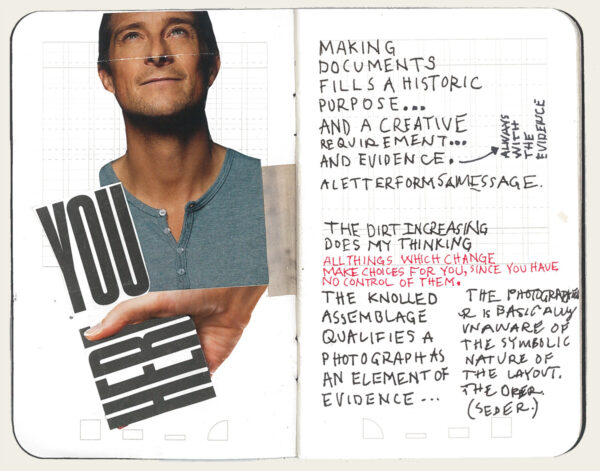 YOU
HERE
MAKING
DOCUMENTS
FILLS A HISTORIC
PURPOSE...
AND A CREATIVE
REQUIREMENT...
AND EVIDENCE.
ALWAYS
WITH
THE
EVIDENCE
A LETTER FORMS A MESSAGE.
THE DIRT INCREASING
DOES MY THINKING
ALL THINGS WHICH CHANGE
MAKE CHOICES FOR YOU, SINCE YOU HAVE
NO CONTROL OF THEM.
THE KNOLLED
ASSEMBLAGE
QUALIFIES A
PHOTOGRAPH AS
AN ELEMENT OF
EVIDENCE...
THE PHOTOGRAPHE
R IS BASICALLY
UNAWARE OF
THE SYMBOLIC
NATURE OF
THE LAYOUT.
THE
(SEDER.)